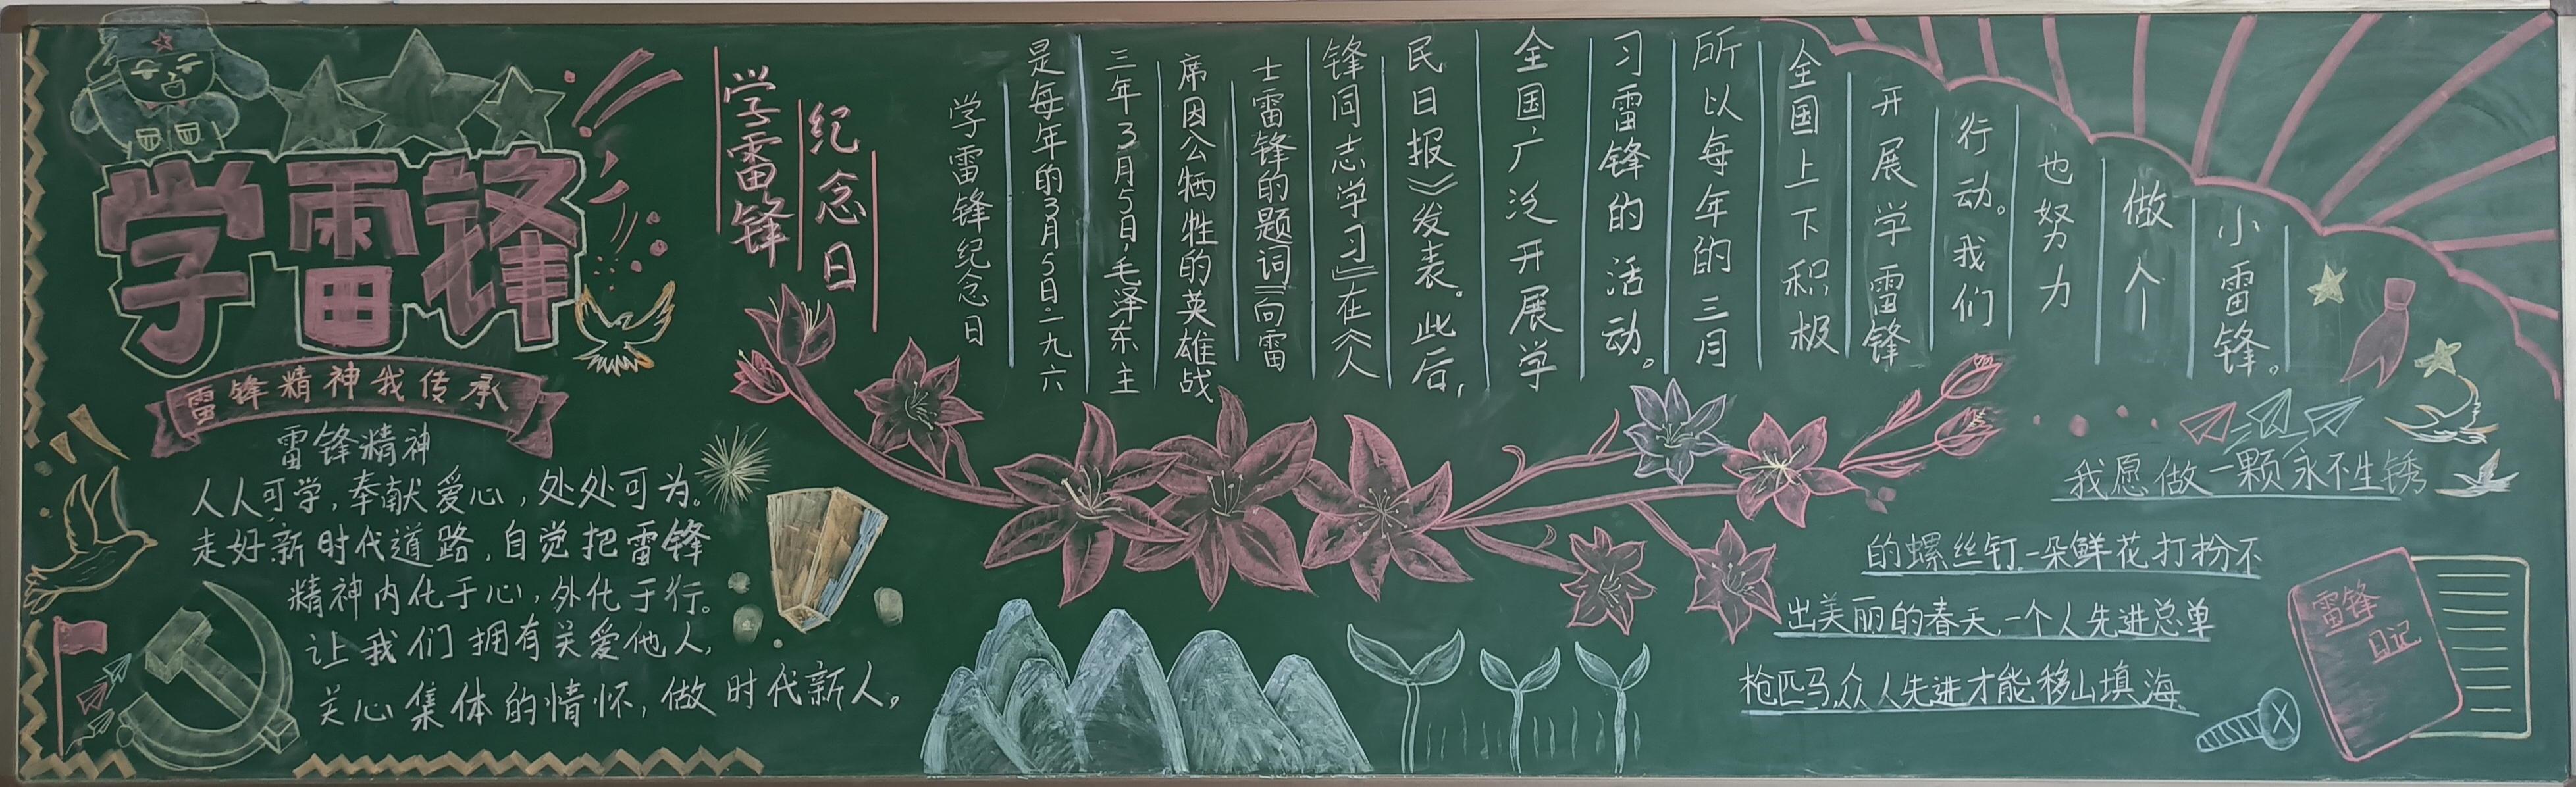 学雷锋
雷锋精神我传承
雷锋精神
人人可学，奉献爱心，处处可为。
走好新时代道路，自觉把雷锋
精神内化于心，外化于行。
让我们拥有关爱他人，
关心集体的情怀，做时代新人。
学雷锋
纪念日
学雷锋纪念日
是每年的3月5日.一九六
三年3月5日，毛泽东主
席因公牺牲的英雄战
士雷锋的题词『向雷
锋同志学习』在《人
民日报》发表。此后，
全国广泛开展学
习雷锋的活动。
所以每年的三月
全国上下积极
开展学雷锋
行动。我们
也努力
做个
小雷锋。
我愿做一颗永不生锈
的螺丝钉.一朵鲜花打扮不
出美丽的春天，一个人先进总单
枪匹马，众人先进才能移山填海。
雷锋
日记